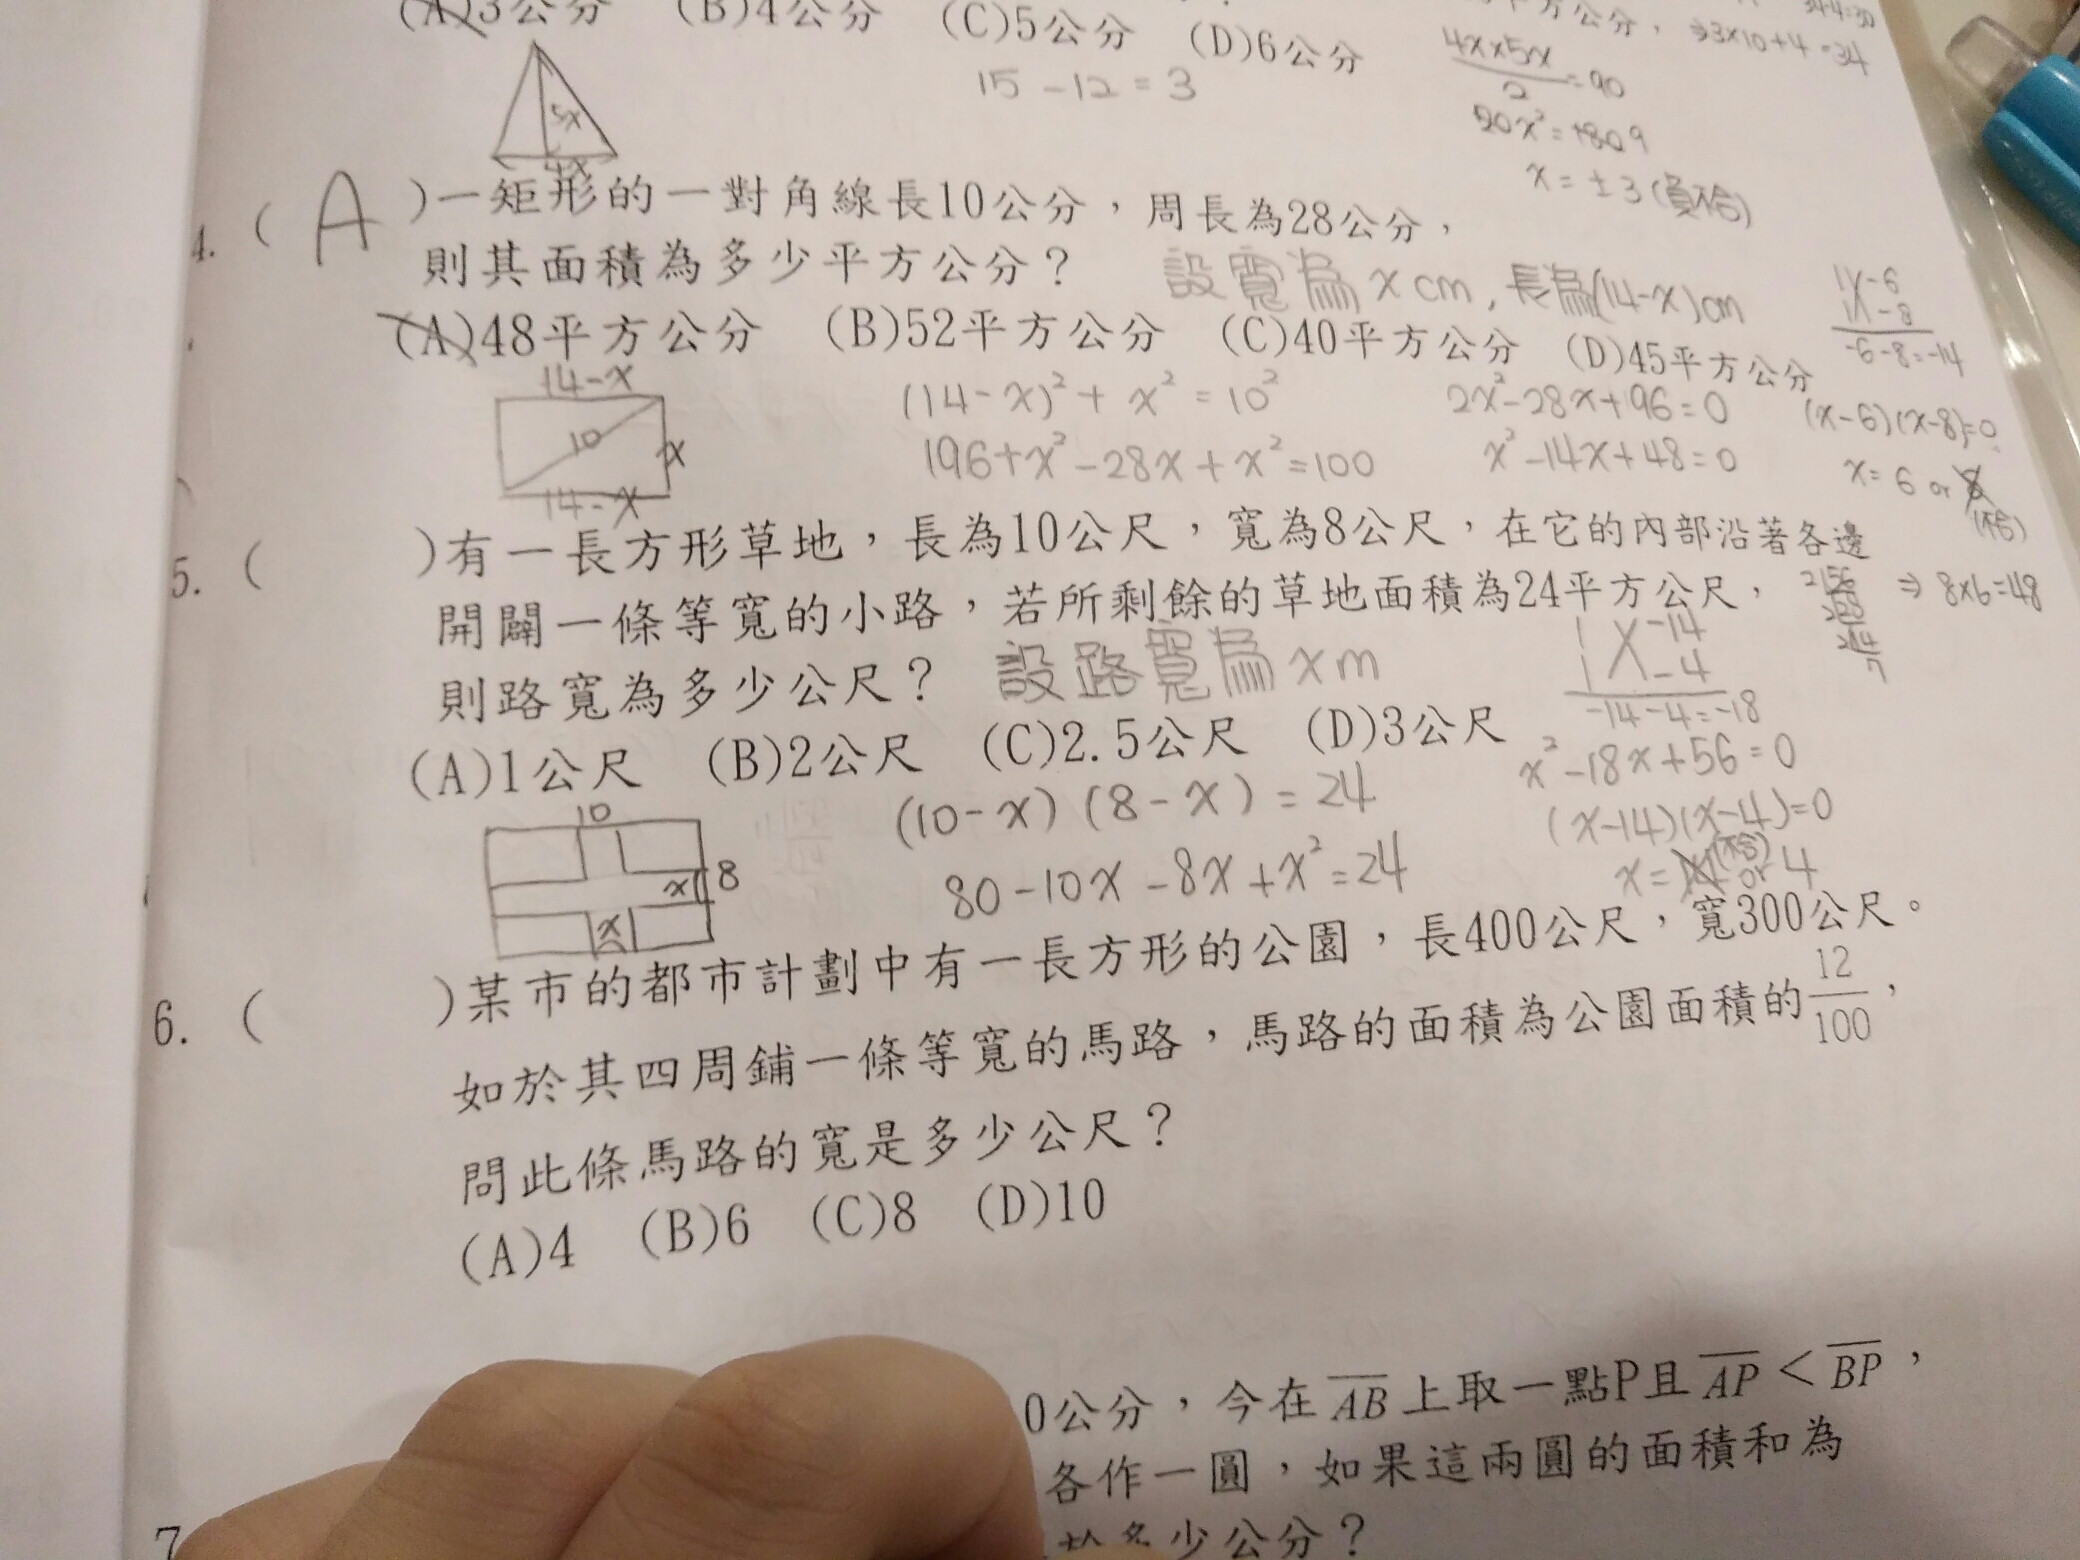 (A)3公分 (B)4公分 (C)5公分 (D)6公分
平方公分,⇒3×10+4=34
15-12=3
5x
4x
4x×5x
2
=90
x=±3(負不合)
4. ( A )一矩形的一對角線長10公分,周長為28公分,
則其面積為多少平方公分?
設寬為xcm,長為(14-x)cm
(A)48平方公分 (B)52平方公分 (C)40平方公分 (D)45平方公分
1 -6
1 -8
-6-8=-14
14-x
10
x
14-x
(14-x)²+x²=10²
196+x²-28x+x²=100
2x²-28x+96=0
x²-14x+48=0
(x-6)(x-8)=0
x=6 or 8
(不合)
⇒8×6=48
5. ( )有一長方形草地,長為10公尺,寬為8公尺,在它的內部沿著各邊
開闢一條等寬的小路,若所剩餘的草地面積為24平方公尺,
則路寬為多少公尺?
設路寬為xm
2 56
2 28
2 14
7
1 -14
1 -4
-14-4=-18
(A)1公尺 (B)2公尺 (C)2.5公尺 (D)3公尺
10
8
x
x
(10-x)(8-x)=24
80-10x-8x+x²=24
x²-18x+56=0
(x-14)(x-4)=0
x=14(不合) or 4
6. ( )某市的都市計劃中有一長方形的公園,長400公尺,寬300公尺。
如於其四周鋪一條等寬的馬路,馬路的面積為公園面積的12/100,
問此條馬路的寬是多少公尺?
(A)4 (B)6 (C)8 (D)10
0公分,今在AB上取一點P且AP<BP,
各作一圓,如果這兩圓的面積和為
7
多少公分?